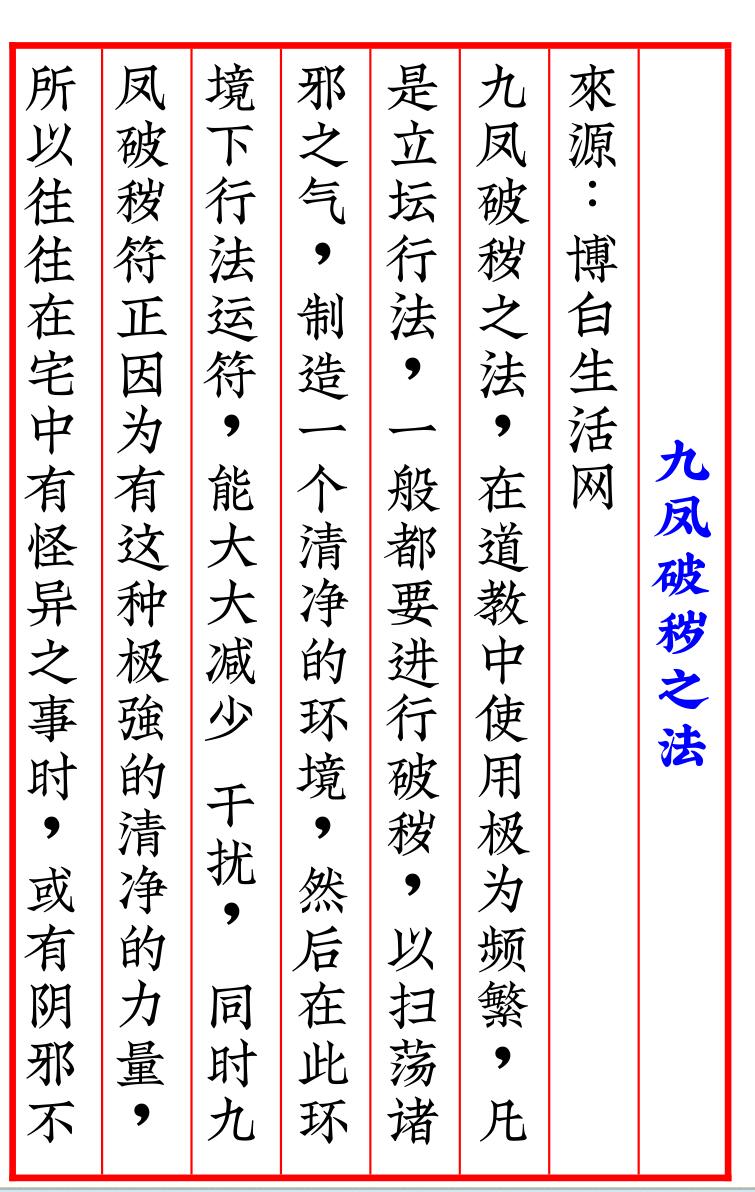 九凤破秽之法
來源：博白生活网
九凤破秽之法，在道教中使用极为频繁，凡
是立坛行法，一般都要进行破秽，以扫荡诸
邪之气，制造一个清净的环境，然后在此环
境下行法运符，能大大减少 干扰， 同时九
凤破秽符正因为有这种极強的清净的力量，
所以往往在宅中有怪异之事时，或有阴邪不